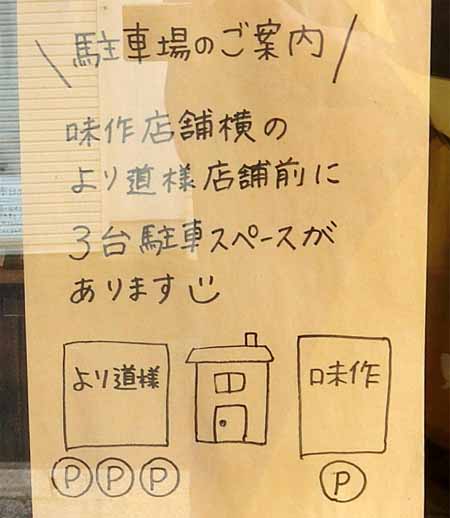 \ 駐車場のご案内 /
味作店舗横の
より道様店舗前に
3台駐車スペースが
あります
より道様
味作
P P P
P